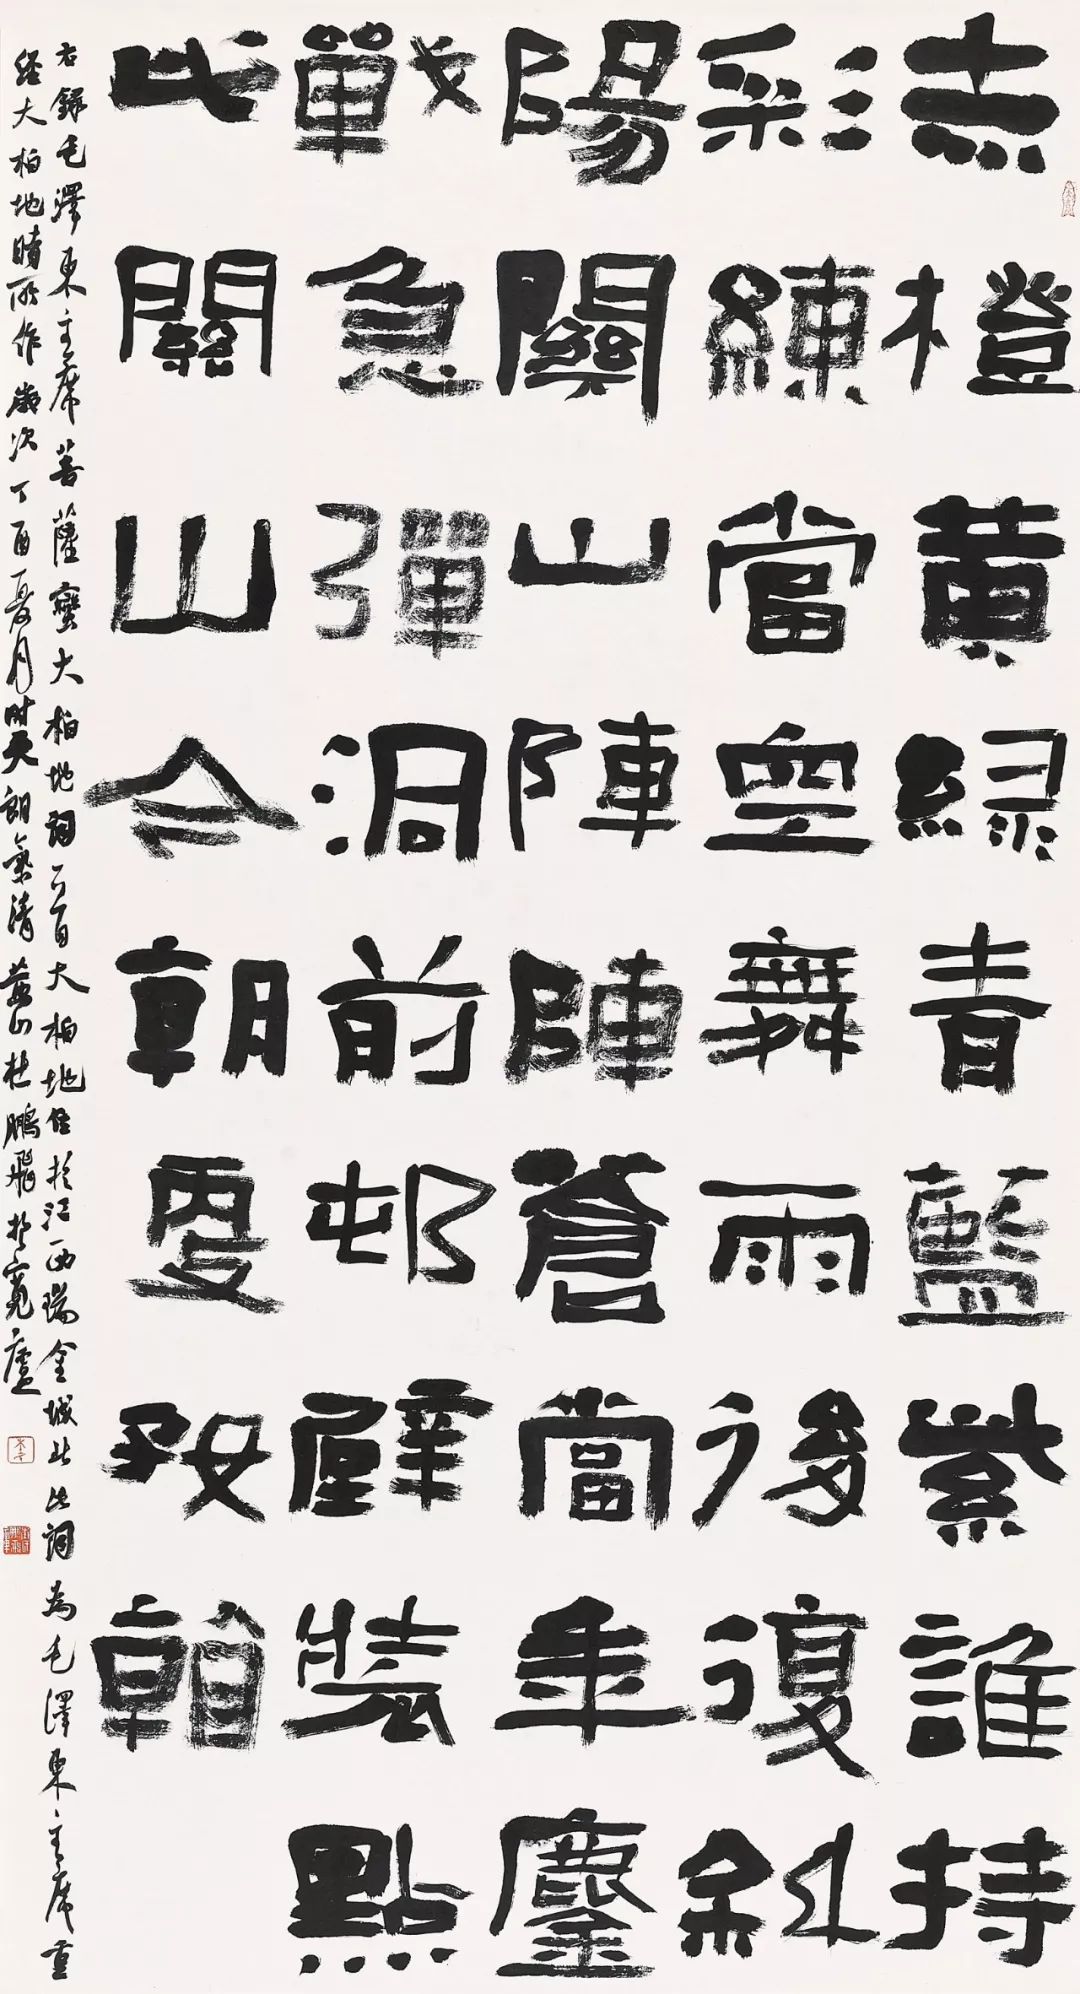 赤橙黄緑青藍紫誰持
彩練當空舞雨後復斜
陽關山陣陣蒼當年鏖
戰急彈洞前邨壁裝點
此關山今朝更好看
右錄毛澤東主席菩薩蠻大柏地詞一首大柏地位於江西瑞金城北此詞為毛澤東主席重
經大柏地時所作歲次丁酉夏月時天朗氣清山杜鵬飛於寬廬